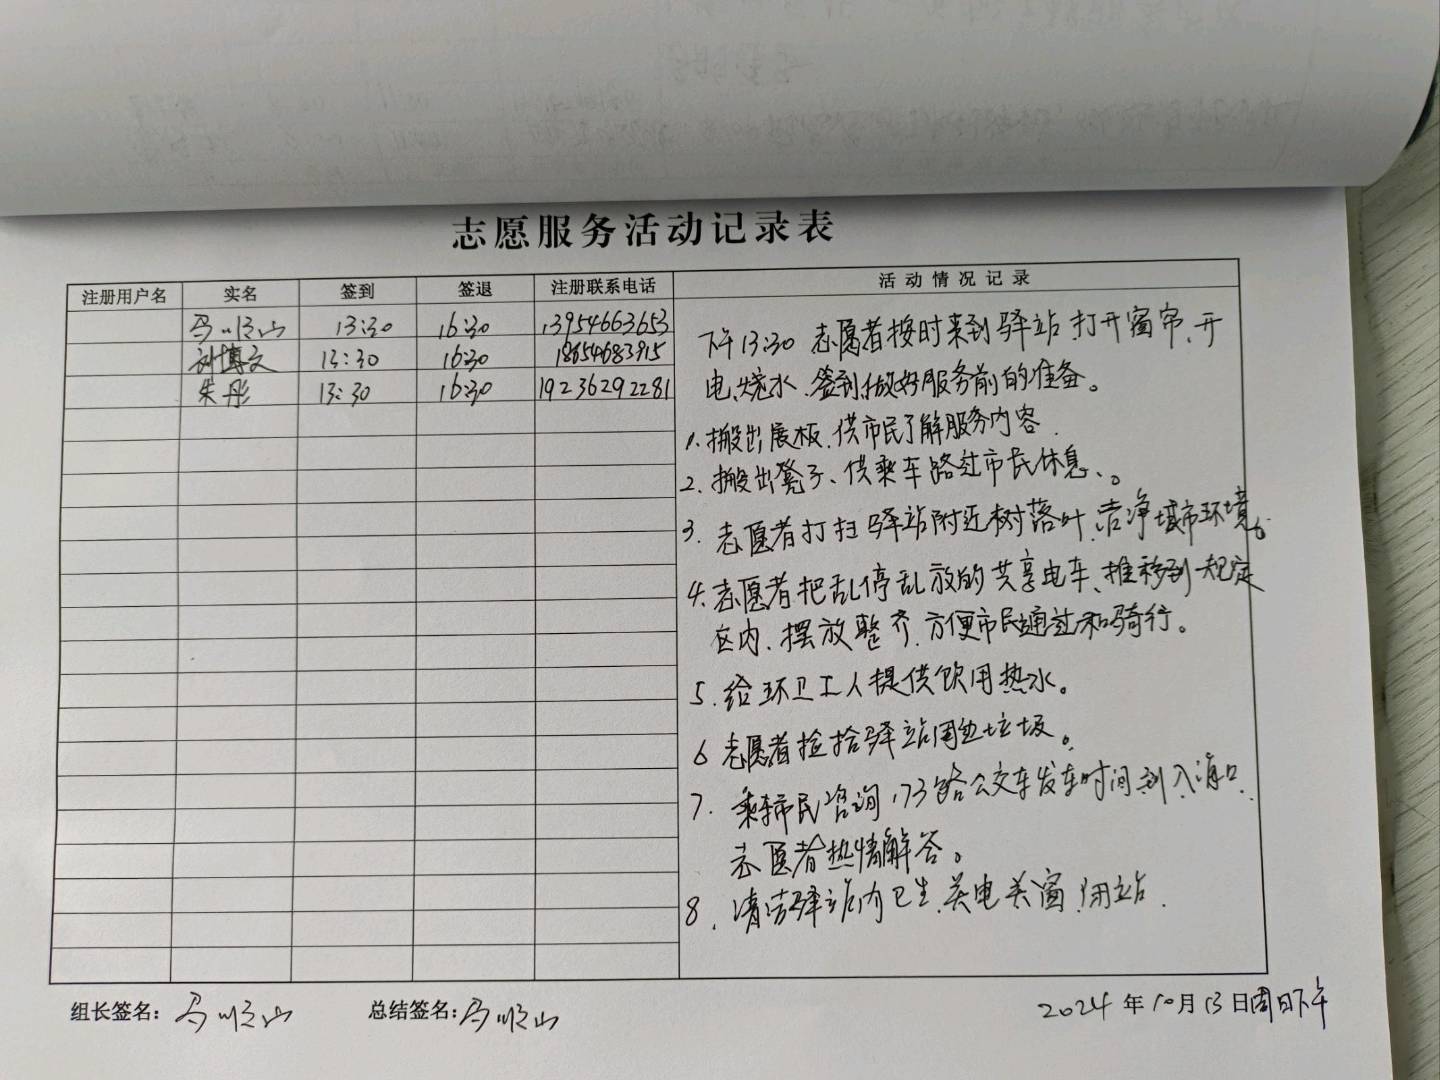 志愿服务活动记录表
注册用户名 实名 签到 签退 注册联系电话 活动情况记录
马顺山 13:30 16:30 13954663653
刘博文 13:30 16:30 18654683915
朱彤 13:30 16:30 19236292281
下午13:30 志愿者按时来到驿站、打开窗帘、开
电、烧水、签到、做好服务前的准备。
1、搬出展板、供市民了解服务内容.
2、搬出凳子、供乘车路过市民休息、。
3、志愿者打扫驿站附近树落叶、洁净城市环境。
4、志愿者把乱停乱放的共享电车、推移到规定
区内、摆放整齐、方便市民通过和骑行。
5、给环卫工人提供饮用热水。
6 志愿者捡拾驿站周边垃圾。
7、乘车市民咨询,173路公交车发车时间到入海口、
志愿者热情解答。
8、清洁驿站内卫生、关电关窗、闭站.
组长签名：马顺山 总结签名：马顺山 2024年10月13日周日下午